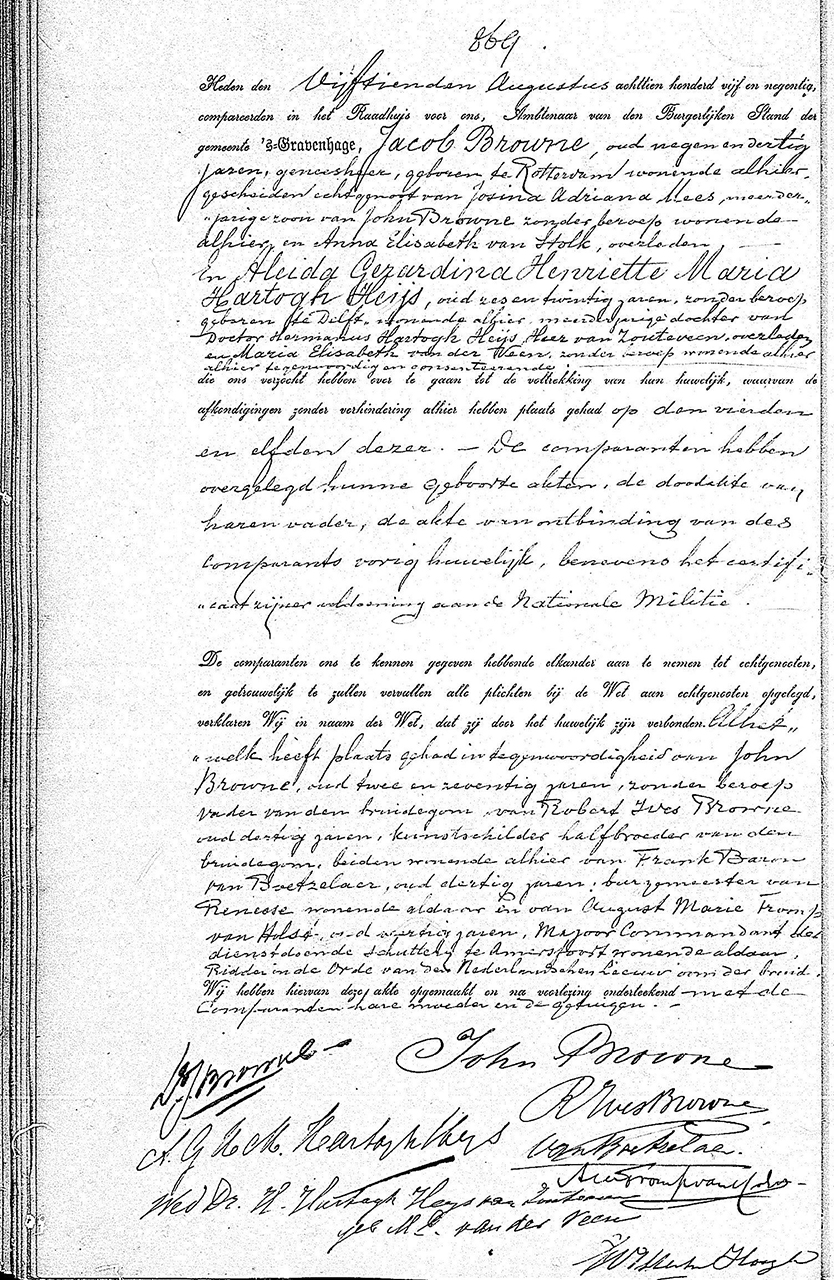 869.
Heden den Vijftienden Augustus achttien honderd vijf en negentig,
compareerden in het Raadhuis voor ons, Ambtenaar van den Burgerlijken Stand der
gemeente 's-Gravenhage, Jacob Browne, oud negen en dertig
jaren, geneesheer, geboren te Rotterdam wonende alhier,
gescheiden echtgenoot van Josina Adriana Mees, meerder-
"jarige zoon van John Browne zonder beroep wonende
alhier, en Anna Elisabeth van Stolk, overleden,
En Aleida Gerardina Henriette Maria
Hartogh Heijs, oud zes en twintig jaren, zonder beroep
geboren te Delft, wonende alhier, meerderjarige dochter van
Doctor Hermanus Hartogh Heijs, Heer van Zouteveen, overleden
en Maria Elisabeth van der Veen, zonder beroep wonende alhier
alhier tegenwoordig en consenteerende,
die ons verzocht hebben over te gaan tot de voltrekking van hun huwelijk, waarvan de
afkondigingen zonder verhindering alhier hebben plaats gehad op den vierden
en elfden dezer. — De comparanten hebben
overgelegd hunne geboorte akten, de doodakte van
haren vader, de akte van ontbinding van des
comparants vorig huwelijk, benevens het certifi-
"caat zijner voldoening aan de Nationale Militie.
De comparanten ons te kennen gegeven hebbende elkander aan te nemen tot echtgenooten,
en getrouwelijk te zullen vervullen alle plichten bij de Wet aan echtgenooten opgelegd,
verklaren Wij in naam der Wet, dat zij door het huwelijk zijn verbonden. Al het"
"welk heeft plaats gehad in tegenwoordigheid van John
Browne, oud twee en zeventig jaren, zonder beroep
vader van den bruidegom, van Robert Ives Browne
oud dertig jaren, kunstschilder halfbroeder van den
bruidegom, beiden wonende alhier van Frank Baron
van Boetzelaer, oud dertig jaren, burgemeester van
Renesse wonende aldaar en van August Marie Tromp
van Holst, oud veertig jaren, Majoor Commandant der
dienstdoende Schutterij te Amersfoort wonende aldaar,
Ridder in de Orde van den Nederlandschen Leeuw oom der bruid.
Wij hebben hiervan deze akte opgemaakt en na voorlezing onderteekend met de
Comparanten hare moeder en de getuigen. —
Dr J. Browne
John Browne
R Ives Browne
A. G. H. M. Hartogh Heys
van Boetzelaer.
Wed Dr. H. Hartogh Heys van Zouteveen
geb M. E. van der Veen